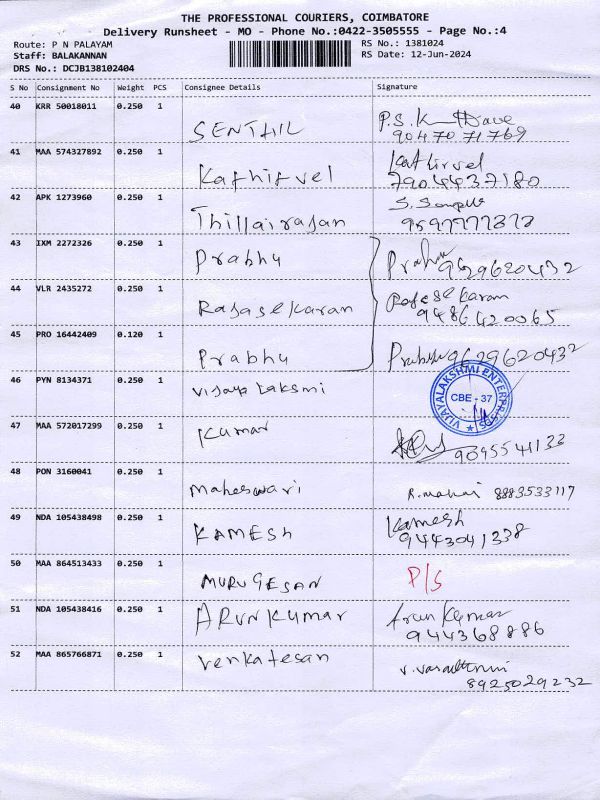 THE PROFESSIONAL COURIERS, COIMBATORE
Delivery Runsheet - MO - Phone No.:0422-3505555 - Page No.:4
Route: P N PALAYAM
RS No.: 1381024
Staff: BALAKANNAN
RS Date: 12-Jun-2024
DRS No.: DCJB138102404
S No Consignment No Weight PCS Consignee Details Signature
40 KRR 50018011 0.250 1 SENTHIL P.S.K
9047071769
41 MAA 574327892 0.250 1 Kathirvel Kathirvel
7904437180
42 APK 1273960 0.250 1 Thillairajan S.
43 IXM 2272326 0.250 1 Prabhu Prabhu 9629620432
44 VLR 2435272 0.250 1 Rajasekaran Rajesekaran
9486420065
45 PRO 16442409 0.120 1 Prabhu Prabhu 9629620432
46 PYN 8134371 0.250 1 Vijaya Laksmi VIJAYALAKSHMI ENTERPRISES
CBE - 37
47 MAA 572017299 0.250 1 Kumar
48 PON 3160041 0.250 1 Maheswari R. 8883533117
49 NDA 105438498 0.250 1 KAMESh Kamesh
9443041338
50 MAA 864513433 0.250 1 MURUGESAN P/S
51 NDA 105438416 0.250 1 ARUNKUMAR Arun Kumar
944368886
52 MAA 865766871 0.250 1 Venkatesan V.
8925029232